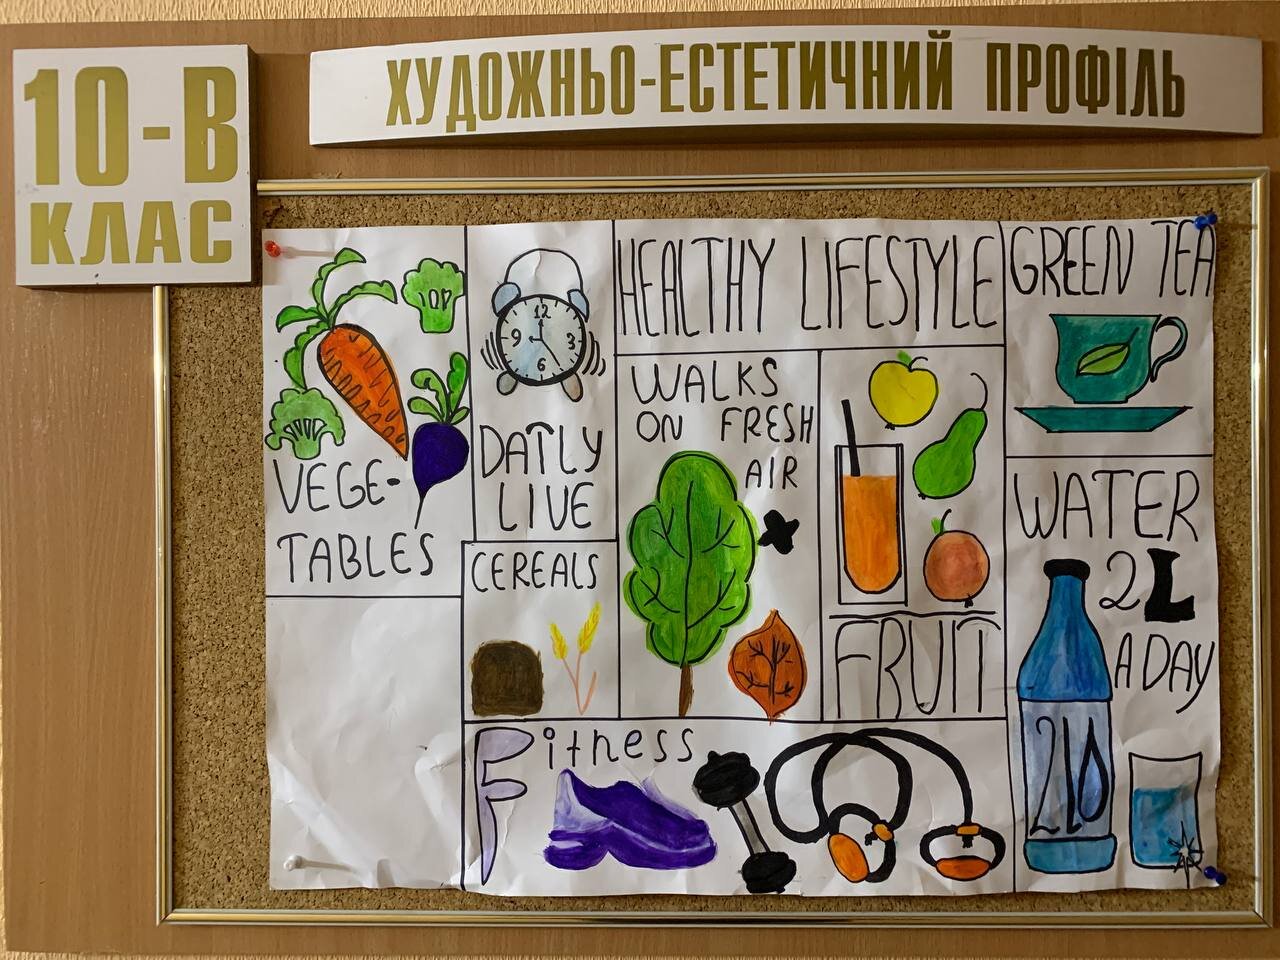 10-В
КЛАС
ХУДОЖНЬО-ЕСТЕТИЧНИЙ ПРОФІЛЬ
VEGE-
TABLES
12
9 3
6
DAILY
LIVE
HEALTHY LIFESTYLE
GREEN TEA
WALKS
ON FRESH
AIR
CEREALS
FRUIT
WATER
2L
A DAY
Fitness